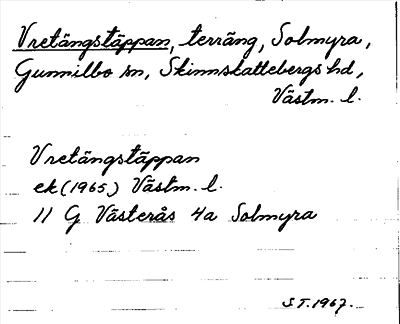 Vretängstäppan, terräng, Solmyra,
Gunnilbo sn, Skinnskattebergs hd,
Västm. l.
Vretängstäppan
ek (1965) Västm. l.
11 G Västerås 4a Solmyra
S.T. 1967.